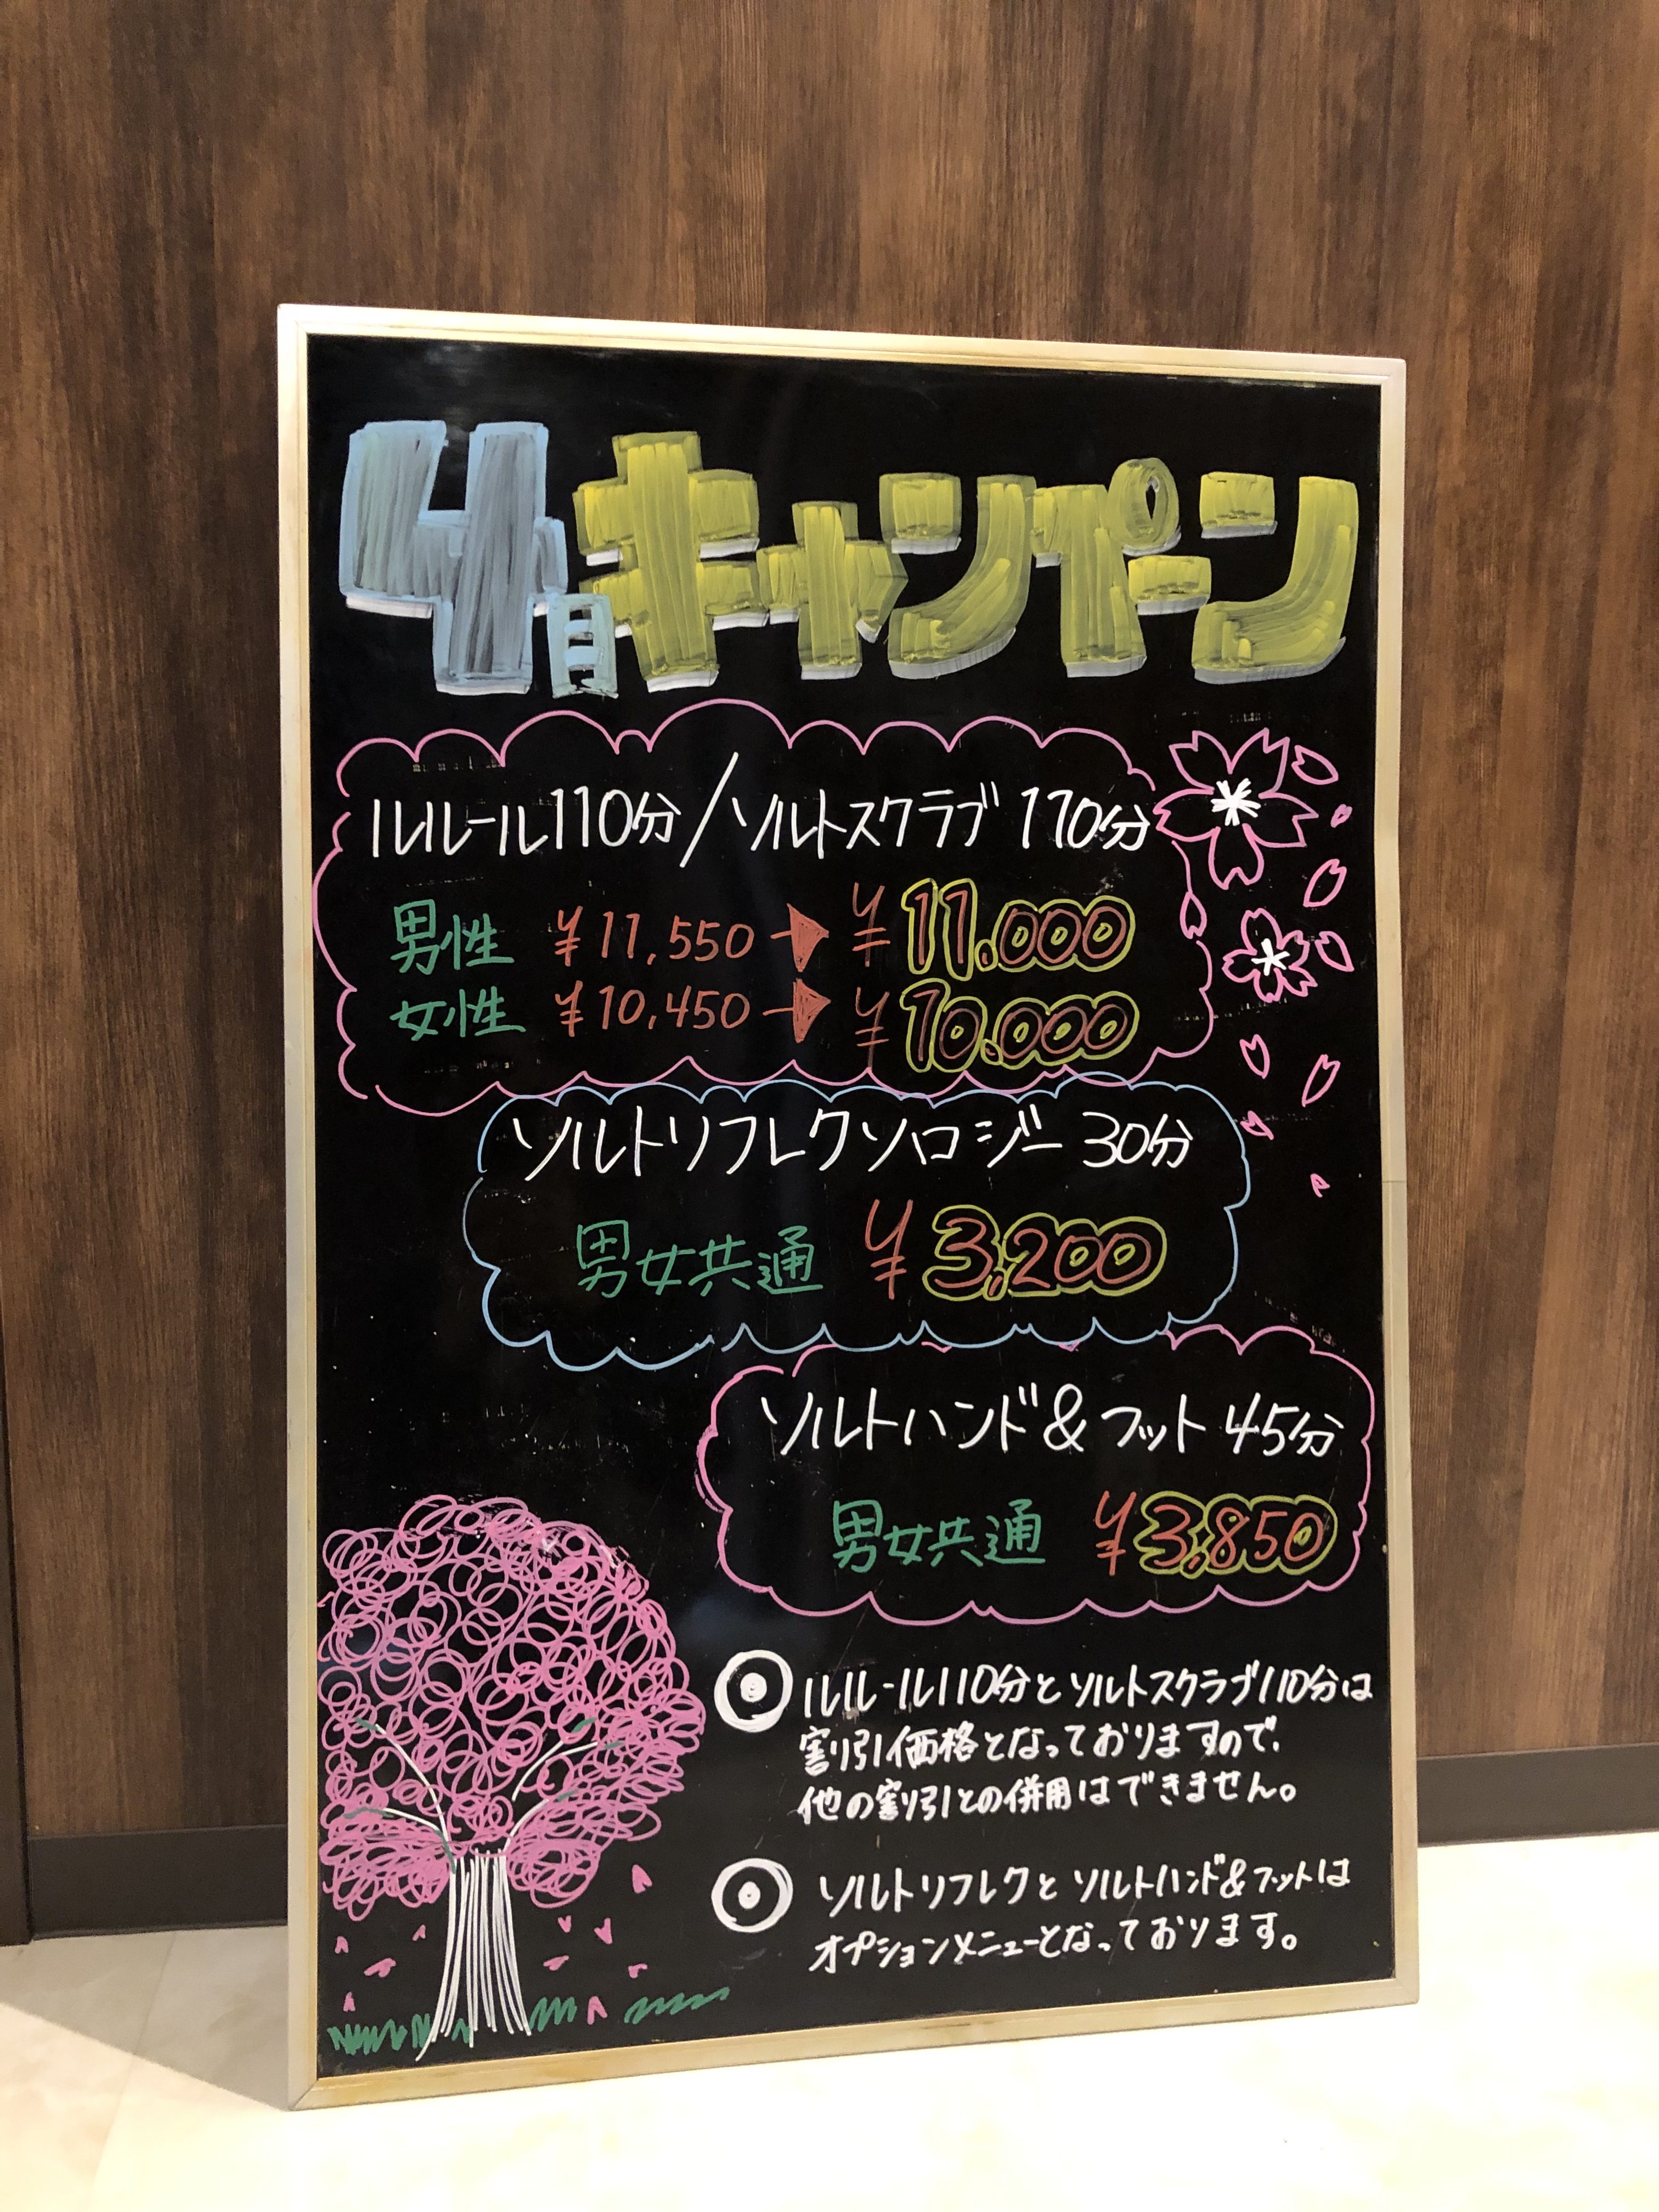 4月キャンペーン
ルルール110分/ソルトスクラブ110分
男性 ¥11,550→¥11.000
女性 ¥10,450→¥10.000
ソルトリフレクソロジー 30分
男女共通 ¥3,200
ソルトハンド&フット 45分
男女共通 ¥3,850
◎ルルール110分とソルトスクラブ110分は
割引価格となっておりますので、
他の割引との併用はできません。
◎ソルトリフレクとソルトハンド&フットは
オプションメニューとなっております。